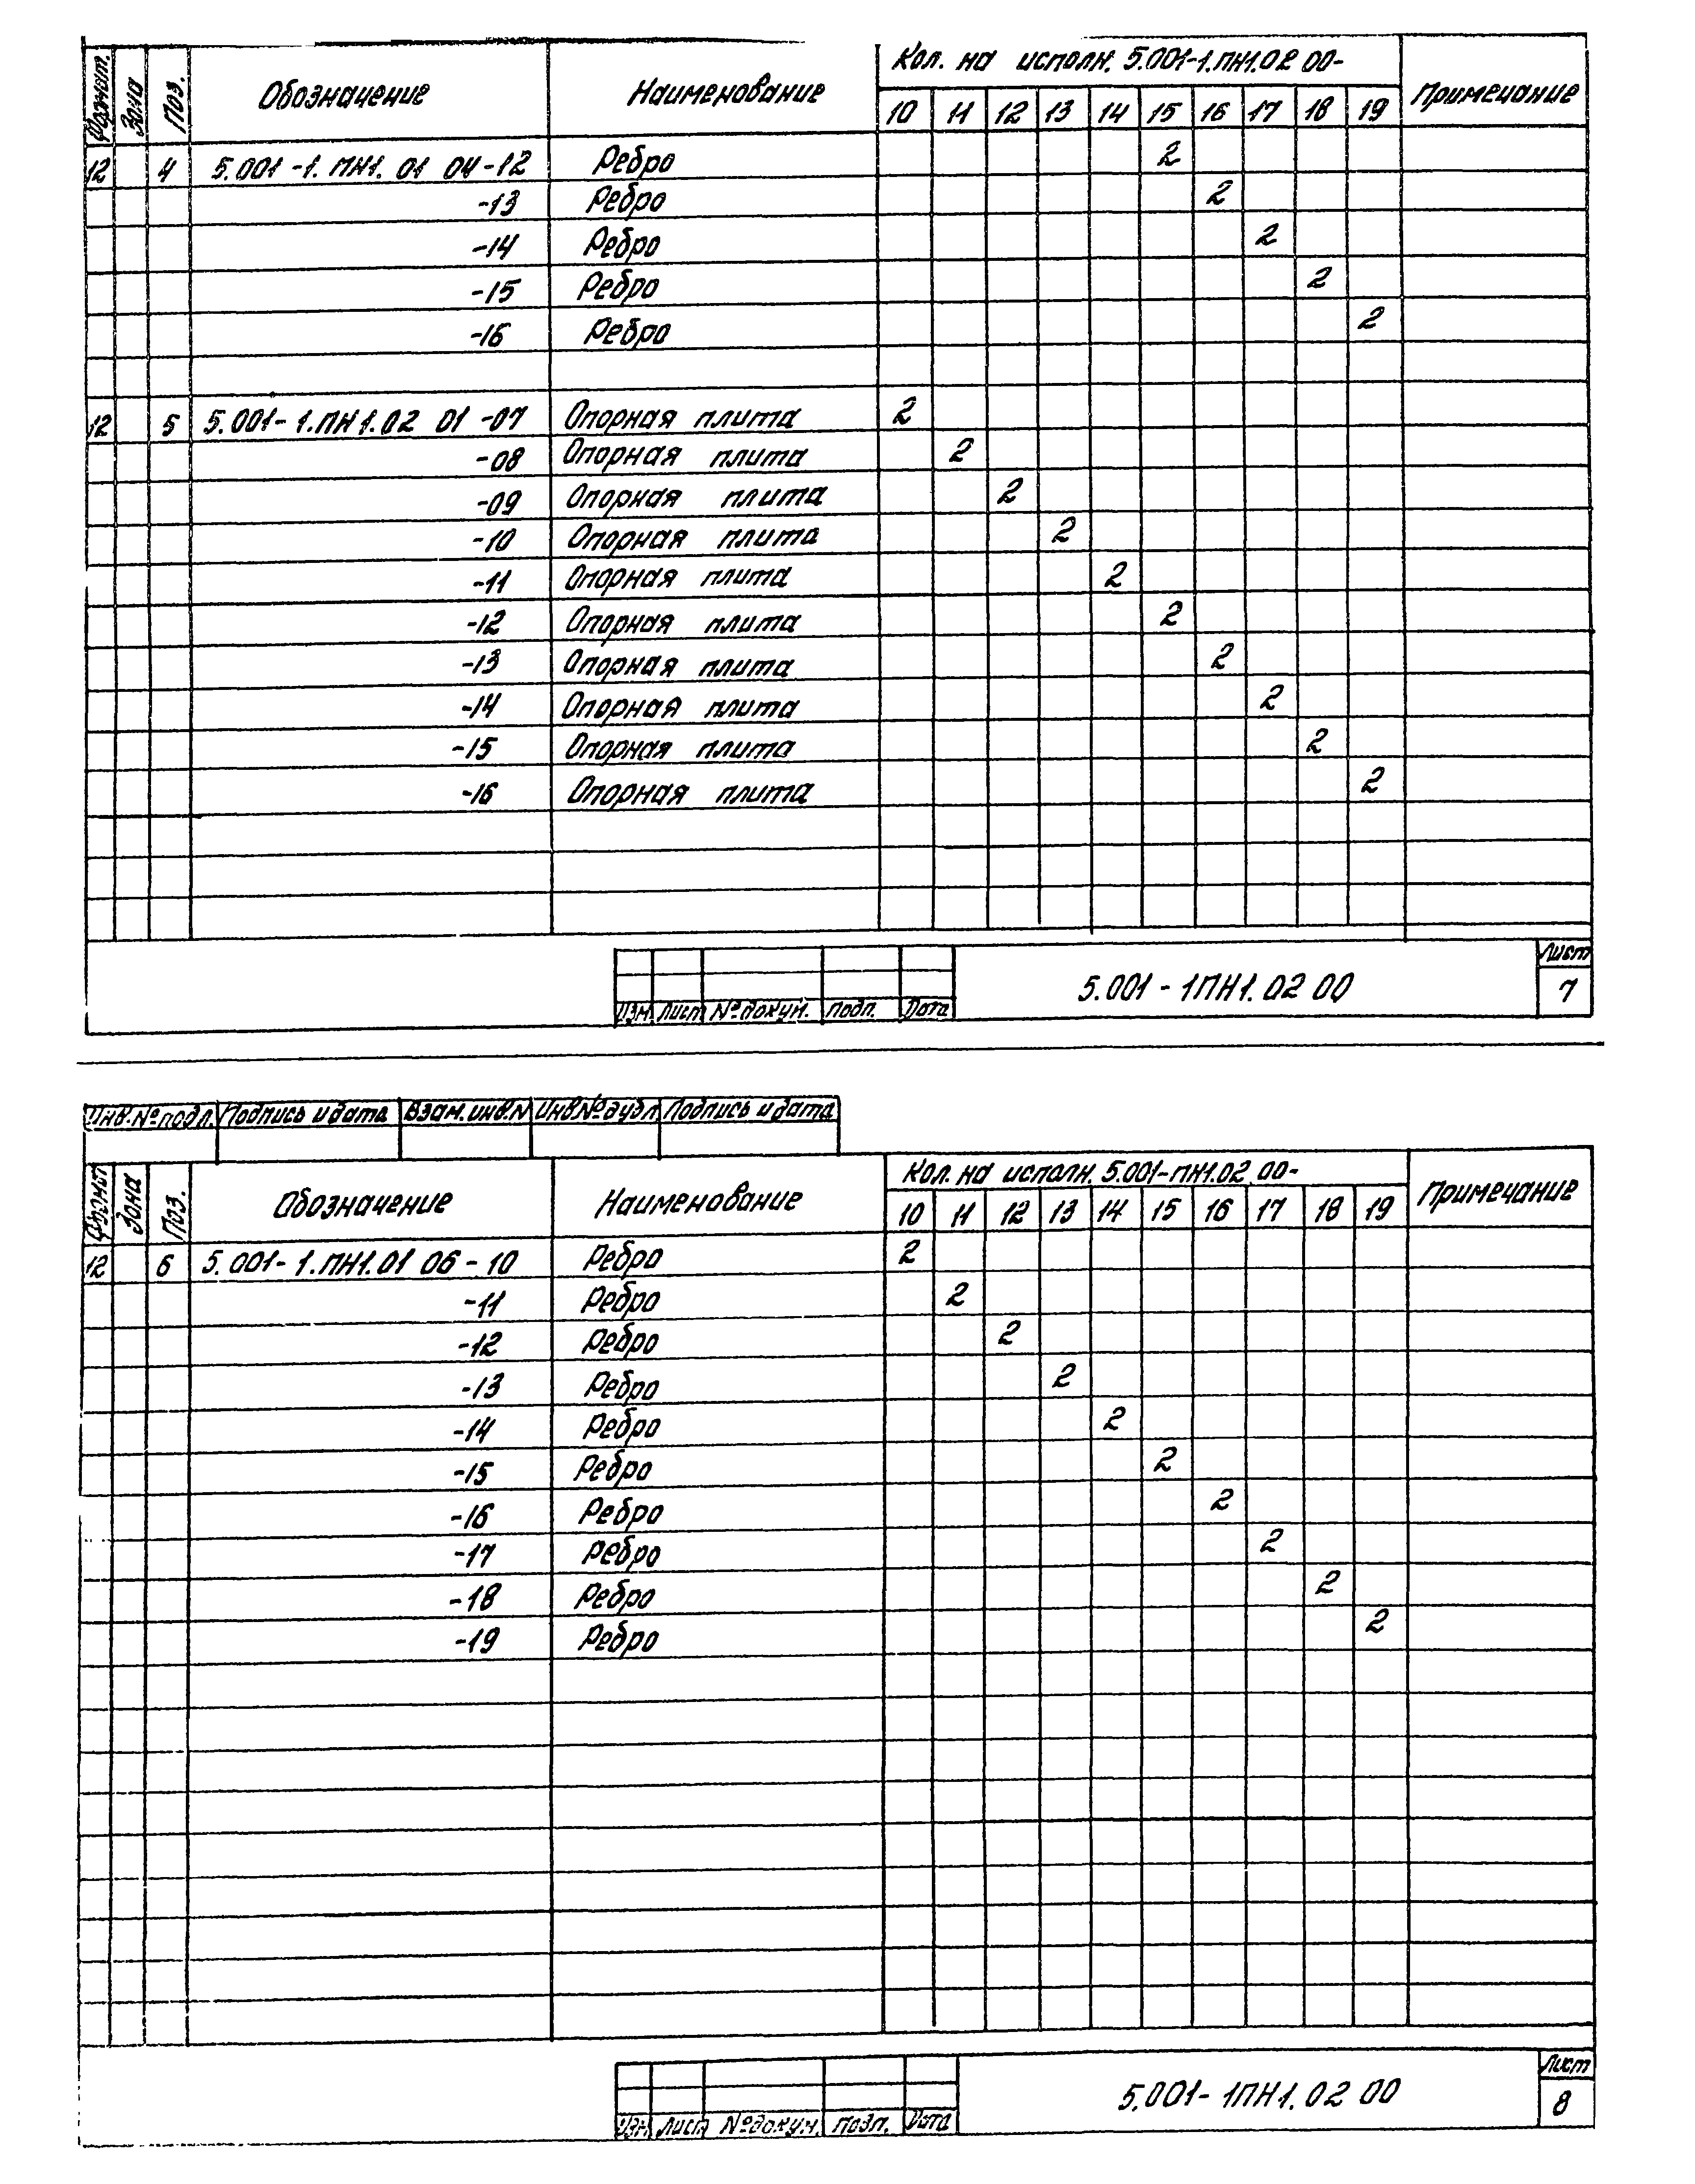 Формат. Зона Поз. Обозначение Наименование Кол. на исполн. 5.001-1.ПН1.02 00- Примечание
10 11 12 13 14 15 16 17 18 19
12 4 5.001-1.ПН1.01 04-12 Ребро 2
-13 Ребро 2
-14 Ребро 2
-15 Ребро 2
-16 Ребро 2
12 5 5.001-1.ПН1.02 01-07 Опорная плита 2
-08 Опорная плита 2
-09 Опорная плита 2
-10 Опорная плита 2
-11 Опорная плита 2
-12 Опорная плита 2
-13 Опорная плита 2
-14 Опорная плита 2
-15 Опорная плита 2
-16 Опорная плита 2
Изм Лист № докум. Подп. Дата
5.001-1ПН1.02 00
Лист
7
Инв.№ подл. Подпись и дата Взам. инв.№ Инв.№ дубл Подпись и дата
Формат Зона Поз. Обозначение Наименование Кол. на исполн. 5.001-ПН1.02 00- Примечание
10 11 12 13 14 15 16 17 18 19
12 6 5.001-1.ПН1.01 06-10 Ребро 2
-11 Ребро 2
-12 Ребро 2
-13 Ребро 2
-14 Ребро 2
-15 Ребро 2
-16 Ребро 2
-17 Ребро 2
-18 Ребро 2
-19 Ребро 2
Изм. Лист № докум. Подп. Дата
5.001-1ПН1.02 00
Лист
8